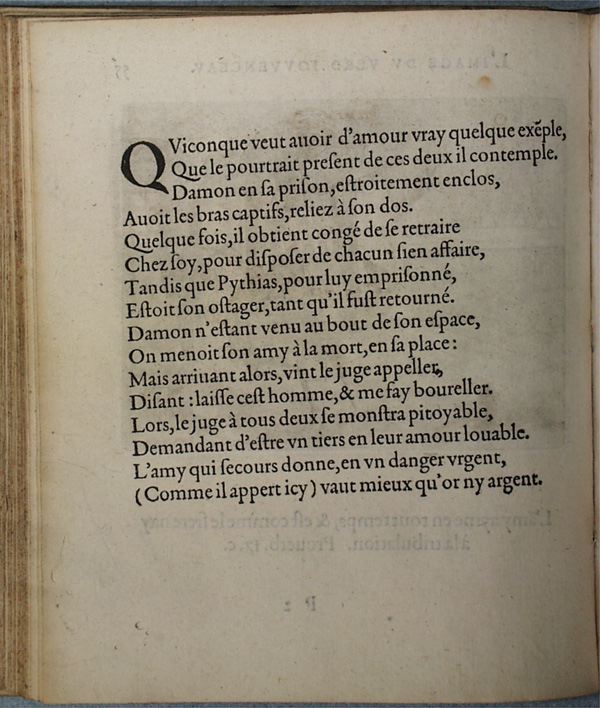 QViconque veut auoir d'amour vray quelque exẽple,
Que le pourtrait preſent de ces deux il contemple.
Damon en ſa priſon,eſtroitement enclos,
Auoit les bras captifs,reliez à ſon dos.
Quelque fois,il obtient congé de ſe retraire
Chez ſoy,pour diſpoſer de chacun ſien affaire,
Tandis que Pythias,pour luy empriſonné,
Eſtoit ſon oſtager,tant qu'il fuſt retourné.
Damon n'eſtant venu au bout de ſon eſpace,
On menoit ſon amy à la mort,en ſa place :
Mais arriuant alors,vint le juge appeller,
Diſant : laiſſe ceſt homme,& me fay boureller.
Lors,le juge à tous deux ſe monſtra pitoyable,
Demandant d'eſtre vn tiers en leur amour louable.
L'amy qui ſecours donne,en vn danger vrgent,
(Comme il appert icy) vaut mieux qu'or ny argent.